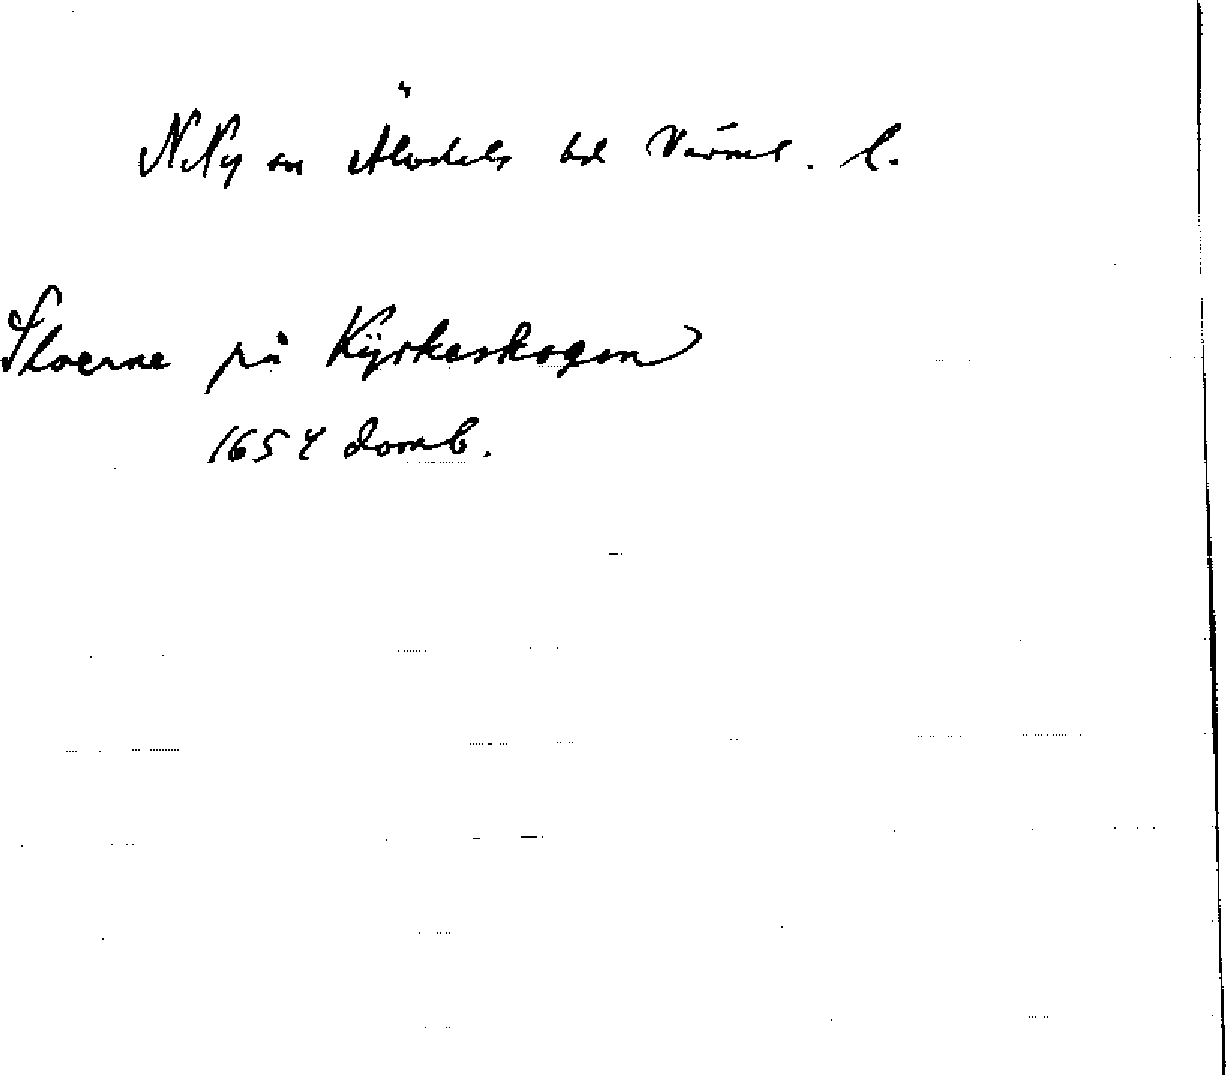 N. Ny sn Älvdals hd Värml. l.
Sloerne på Kÿrkeskogen
1654 domb.